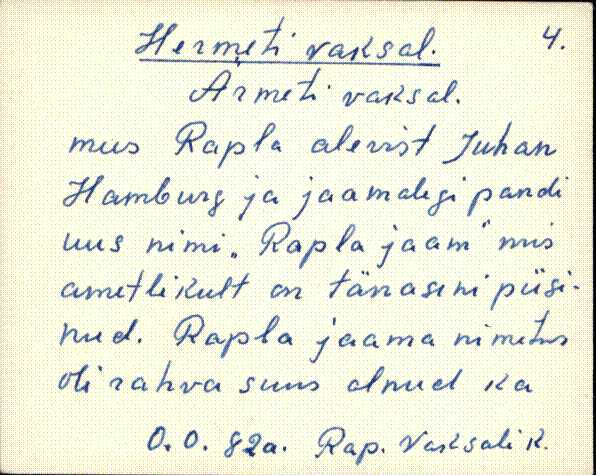 Hermeti vaksal. 4.
Ärmeti vaksal.
mus Rapla alevist Juhan
Hamburg ja jaamalegi pandi
uus nimi „Rapla jaam" mis
ametlikult on tänaseni püsi-
nud. Rapla jaama nimetus
oli rahva suus olnud ka
O.O. 82a. Rap. Vaksali k.